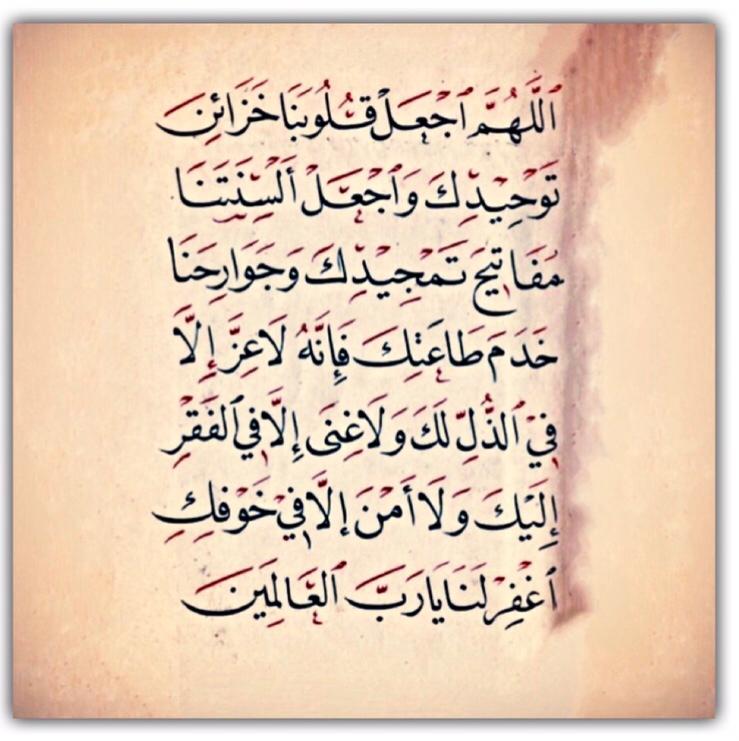 اللَّهُمَّ ٱجْعَلْ قُلُوبَنَا خَزَائِنَ
تَوْحِيْدِكَ وَٱجْعَلْ أَلْسِنَتَنَا
مَفَاتِيْحَ تَمْجِيْدِكَ وَجَوَارِحَنَا
خَدَمَ طَاعَتِكَ فَإِنَّهُ لَا عِزَّ إِلَّا
فِيْ الذُّلِّ لَكَ وَلَا غِنَى إِلَّا فِي ٱلْفَقْرِ
إِلَيْكَ وَلَا أَمْنَ إِلَّا فِيْ خَوْفِكَ
ٱغْفِرْ لَنَا يَا رَبَّ ٱلْعَالَمِينَ